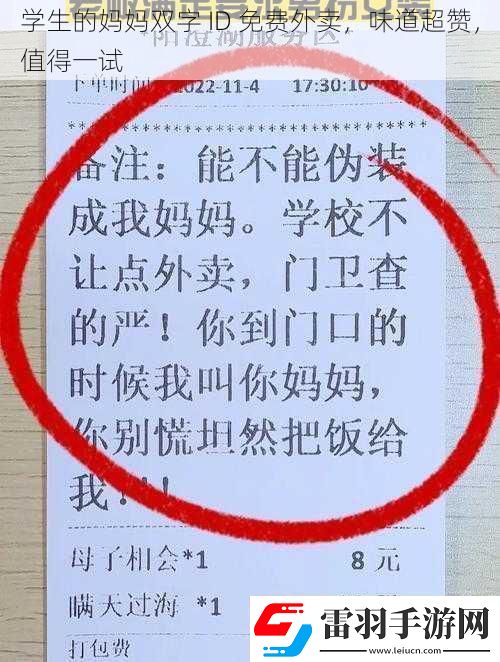 学生的妈妈双字 ID 免费外卖，味道超赞，
值得一试
阳澄湖服务区
下单时间
2022-11-4 17:30:10
备注：能不能伪装
成我妈妈。学校不
让点外卖，门卫查
的严！你到门口的
时候我叫你妈妈，
你别慌坦然把饭给
我！！！
母子相会*1 8 元
瞒天过海 *1
打包费
雷羽手游网
www.leiucn.com